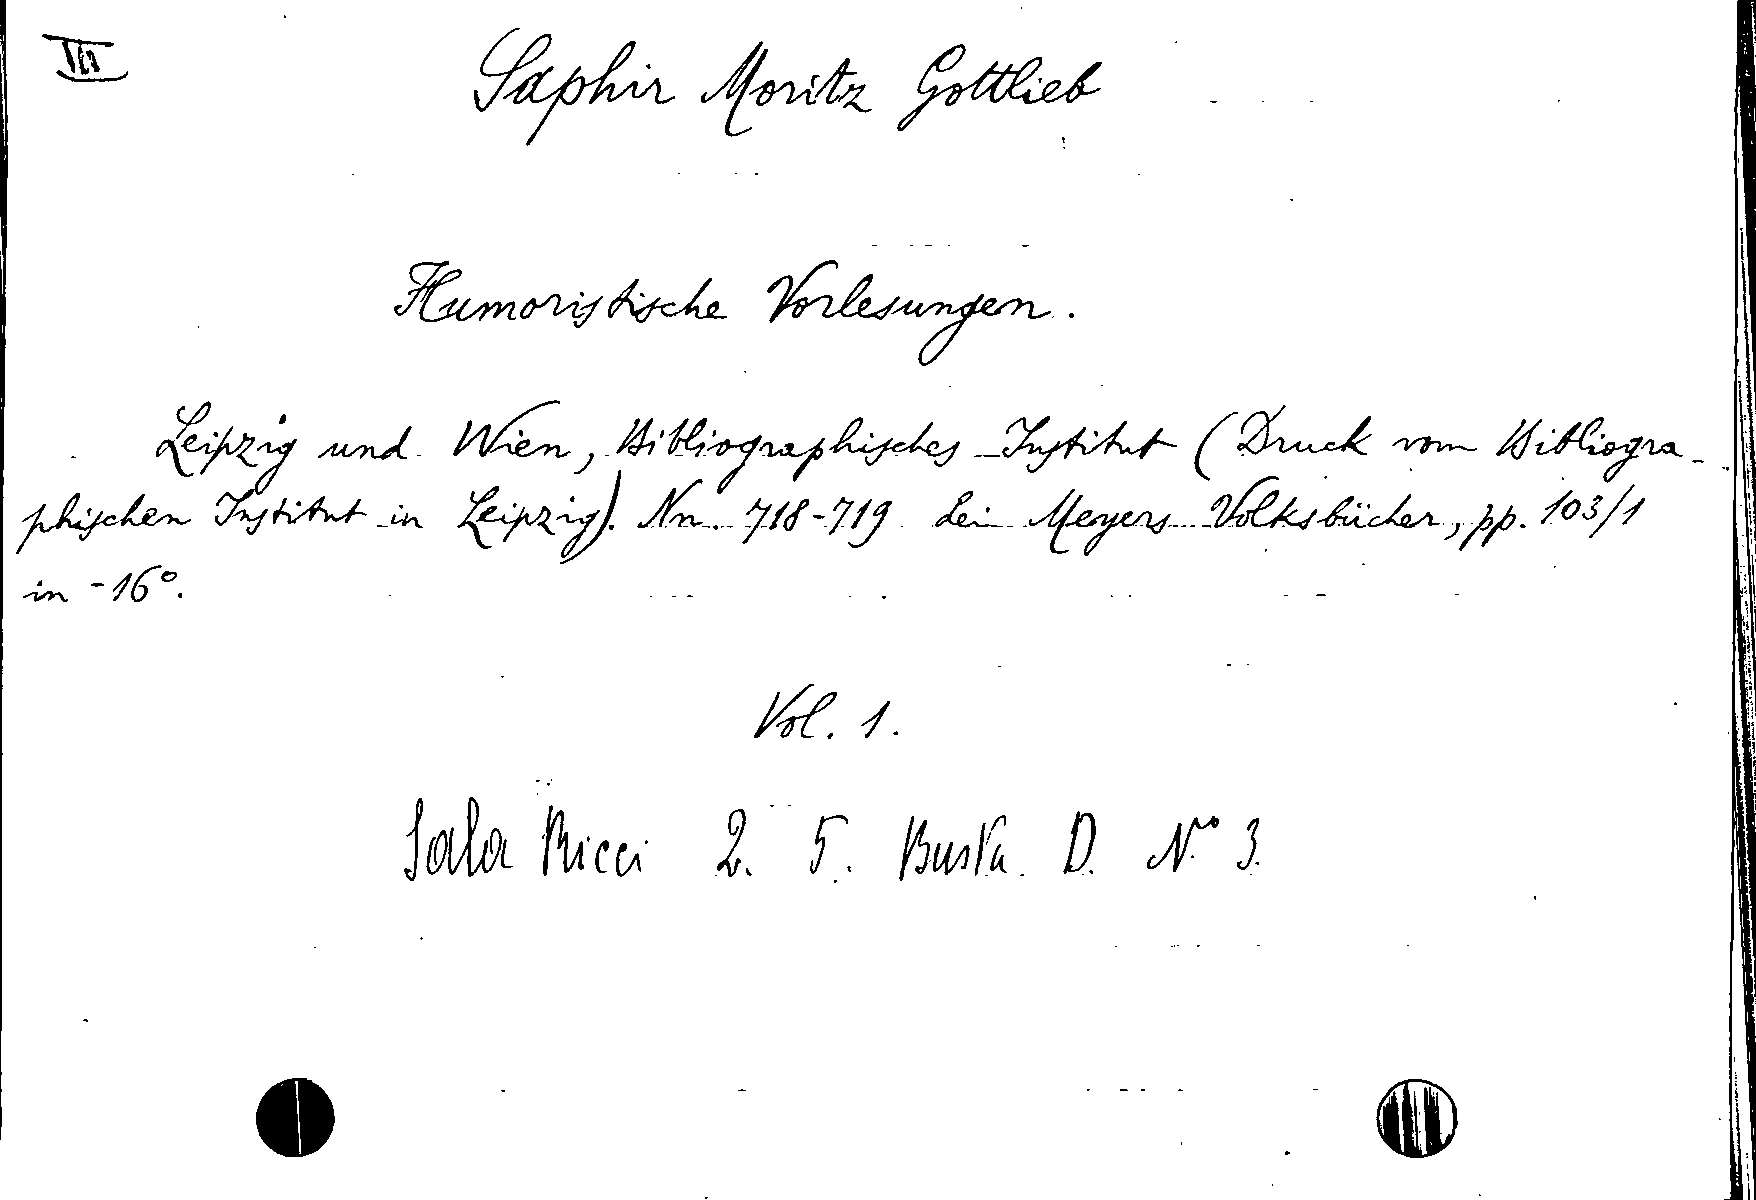 Saphir Moritz Gottlieb
Humoristische Vorlesungen.
Leipzig und Wien, Bibliographisches Institut (Druck vom Bibliogra-
phischen Institut in Leipzig). Nn. 718-719 dei Meyers Volksbücher, pp. 103/1
in -16°.
Vol. 1.
Sala Ricci 2. 5. Busta D. N.° 3.